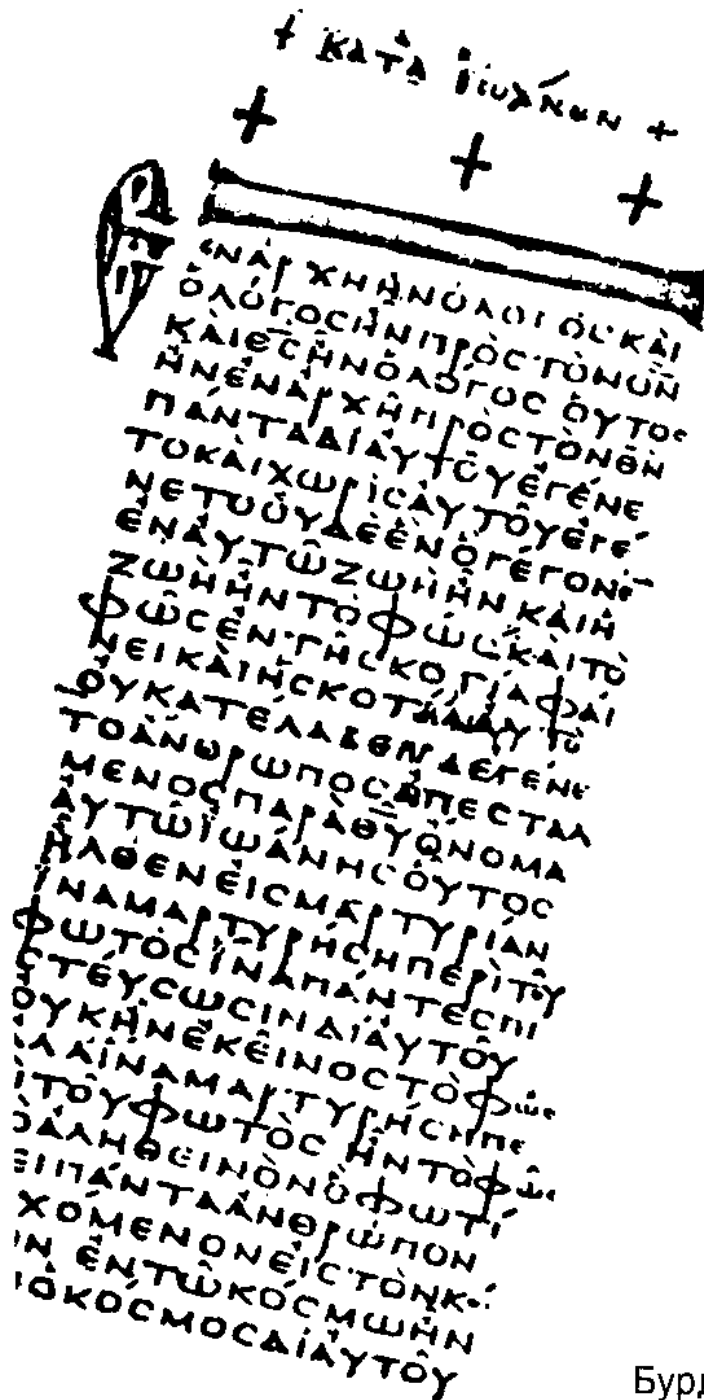 + ΚΑΤΑ ΙΩΑΝΝΗΝ +
+ + +
ΕΝΑΡΧΗΗΝΟΛΟΓΟΣ ΚΑΙ
ΟΛΟΓΟΣΗΝΠΡΟΣΤΟΝΘΝ
ΚΑΙΘΣΗΝΟΛΟΓΟΣ ΟΥΤΟΣ
ΗΝΕΝΑΡΧΗΠΡΟΣΤΟΝΘΝ
ΠΑΝΤΑΔΙΑΥΤΟΥΕΓΕΝΕ
ΤΟΚΑΙΧΩΡΙΣΑΥΤΟΥΕΓΕ
ΝΕΤΟΟΥΔΕΕΝΟΓΕΓΟΝΕ
ΕΝΑΥΤΩΖΩΗΗΝ ΚΑΙΗ
ΖΩΗΗΝΤΟΦΩΣ ΚΑΙΤΟ
ΦΩΣΕΝΤΗΣΚΟΤΙΑΦΑΙ
ΝΕΙΚΑΙΗΣΚΟΤΙΑΑΥΤΟ
ΟΥΚΑΤΕΛΑΒΕΝ ΕΓΕΝΕ
ΤΟΑΝΘΡΩΠΟΣΑΠΕΣΤΑΛ
ΜΕΝΟΣΠΑΡΑΘΥΟΝΟΜΑ
ΑΥΤΩΙΩΑΝΗΣΟΥΤΟΣ
ΗΛΘΕΝΕΙΣΜΑΡΤΥΡΙΑΝ
ΙΝΑΜΑΡΤΥΡΗΣΗΠΕΡΙΤΟΥ
ΦΩΤΟΣΙΝΑΠΑΝΤΕΣΠΙ
ΣΤΕΥΣΩΣΙΝΔΙΑΥΤΟΥ
ΟΥΚΗΝΕΚΕΙΝΟΣΤΟΦΩΣ
ΛΛΑΙΝΑΜΑΡΤΥΡΗΣΗΠΕ
ΙΤΟΥΦΩΤΟΣ ΗΝΤΟΦΩΣ
ΟΑΛΗΘΕΙΝΟΝΟΦΩΤΙ
ΕΙΠΑΝΤΑΑΝΘΡΩΠΟΝ
ΧΟΜΕΝΟΝΕΙΣΤΟΝΚΟ
ΟΝ ΕΝΤΩΚΟΣΜΩΗΝ
ΟΚΟΣΜΟΣΔΙΑΥΤΟΥ
Бурд